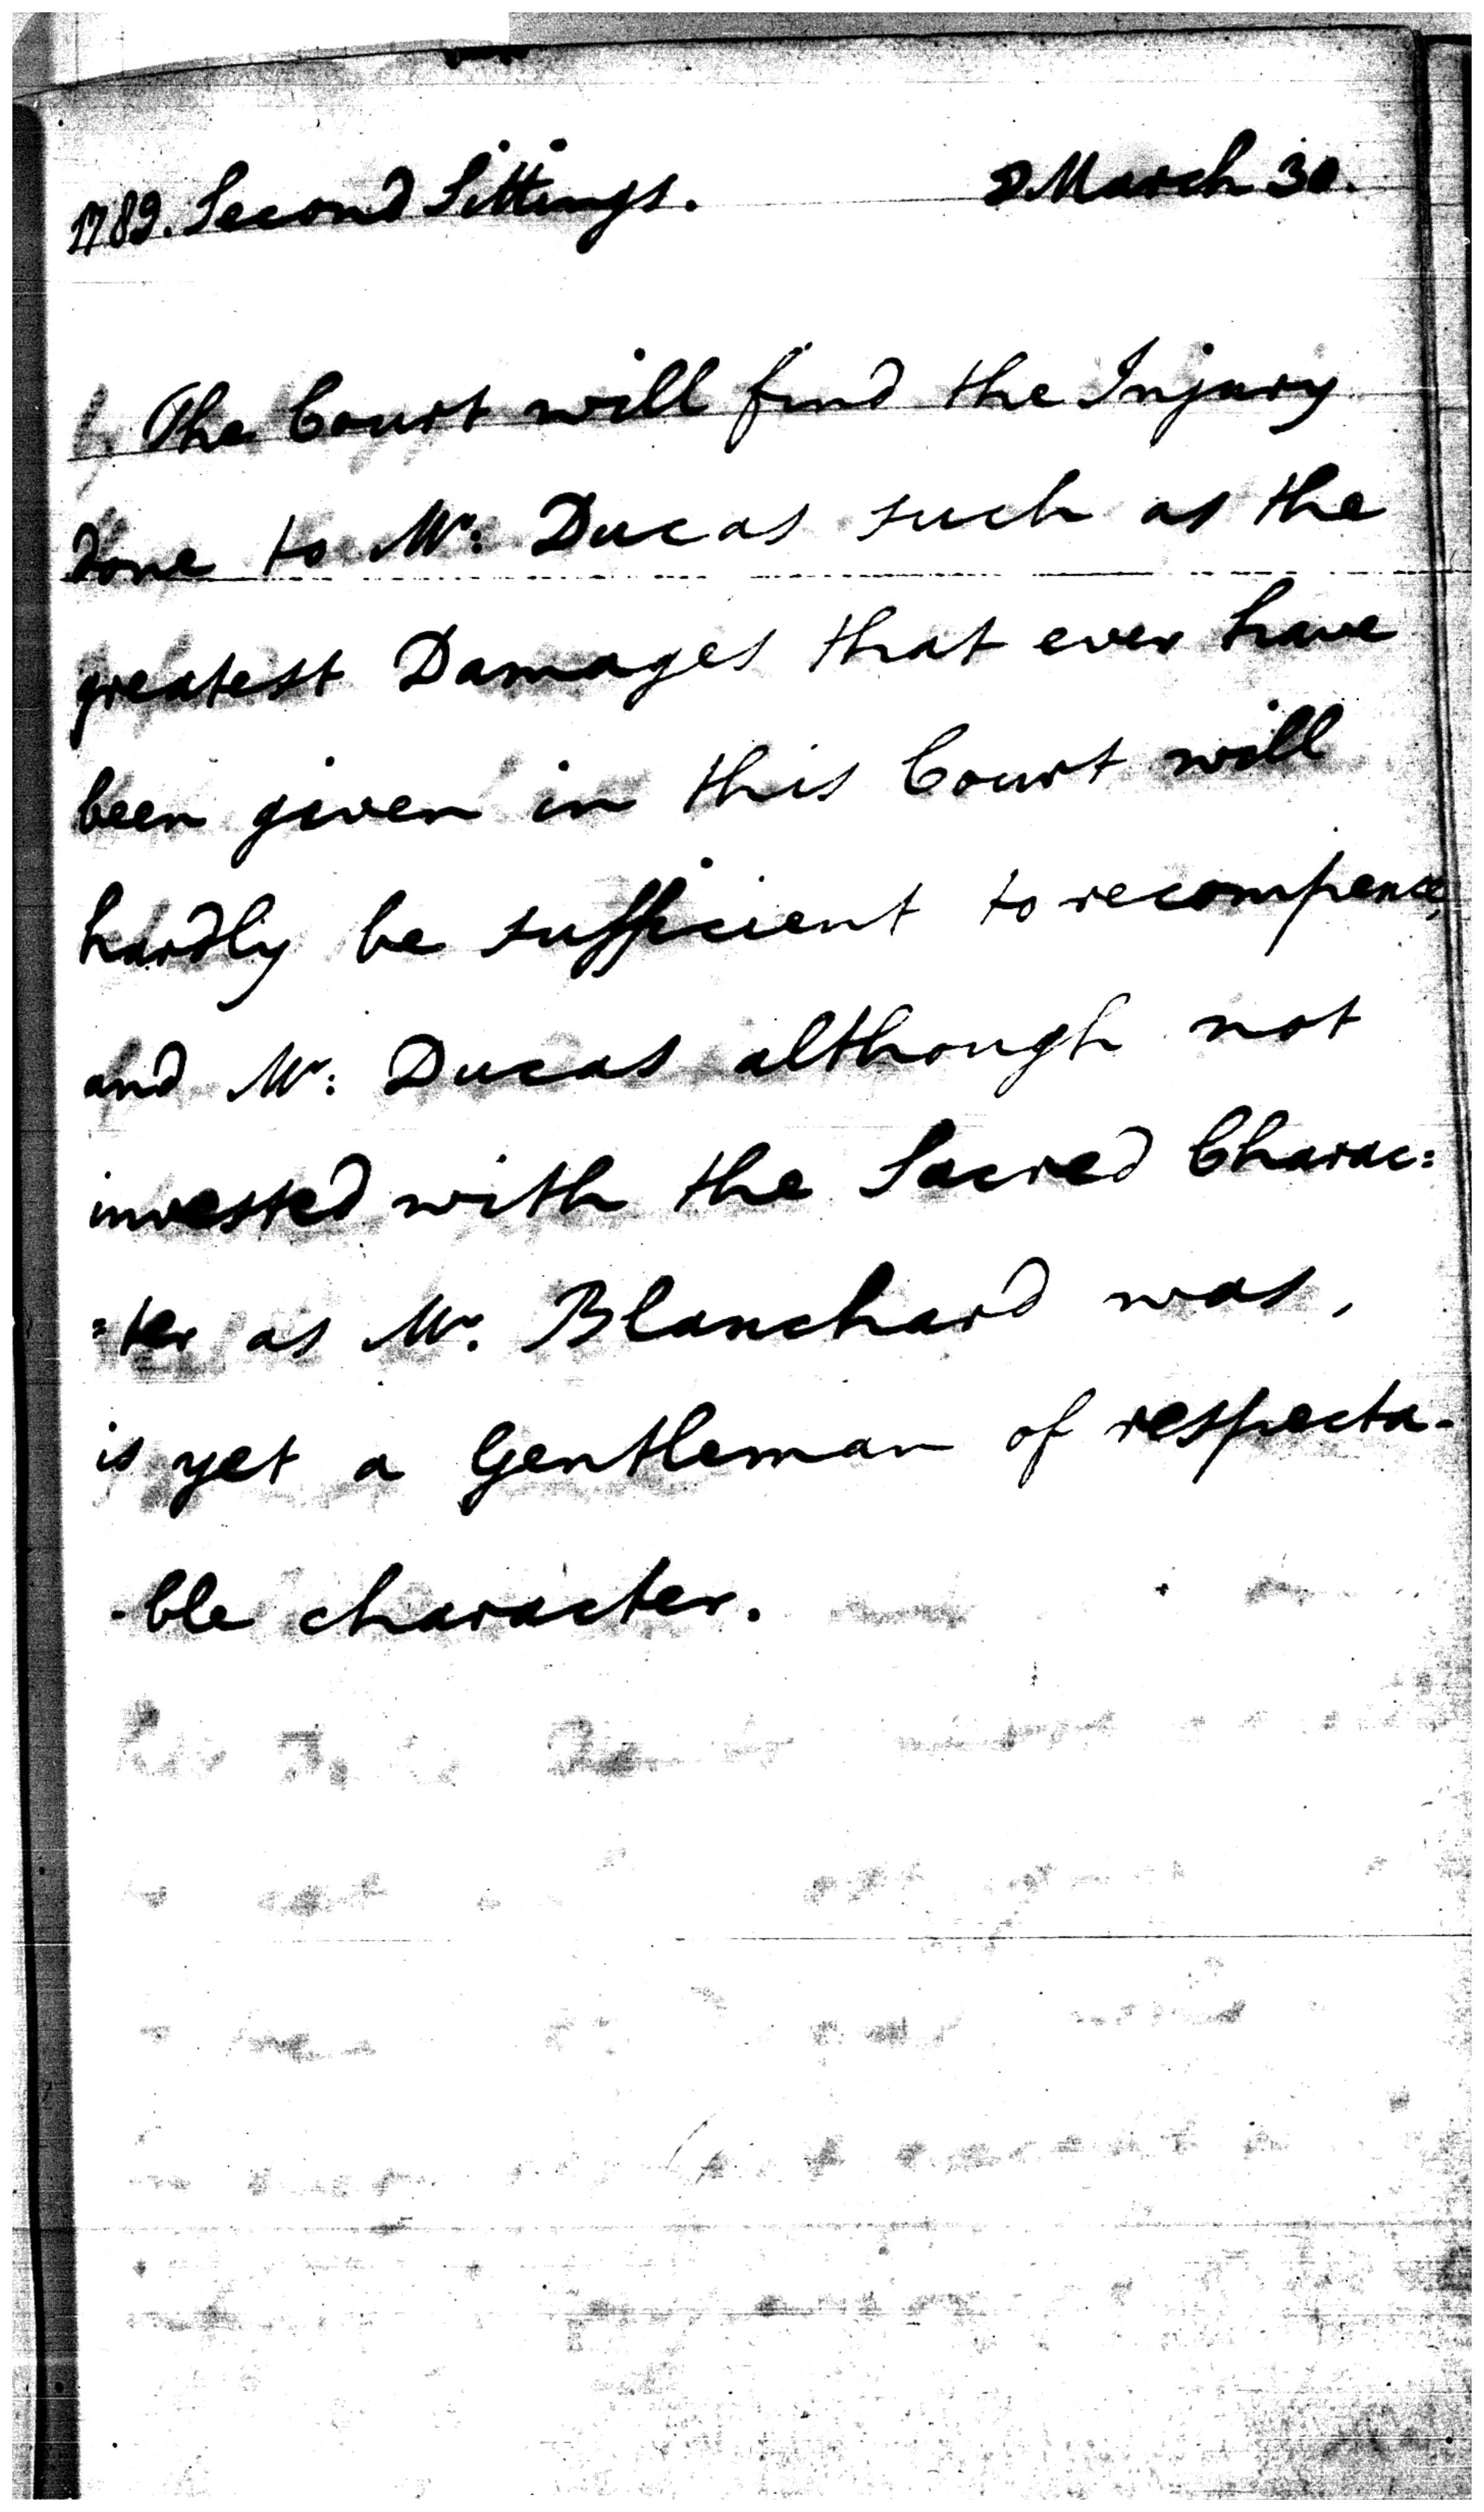 1789. Second Sittings. March 30.
The Court will find the Injury
done to Mr: Ducas such as the
greatest Damages that ever have
been given in this Court will
hardly be sufficient to recompence,
and Mr: Ducas although not
invested with the Sacred Charac:
:ter as Mr. Blanchard was,
is yet a Gentleman of respecta-
-ble character.